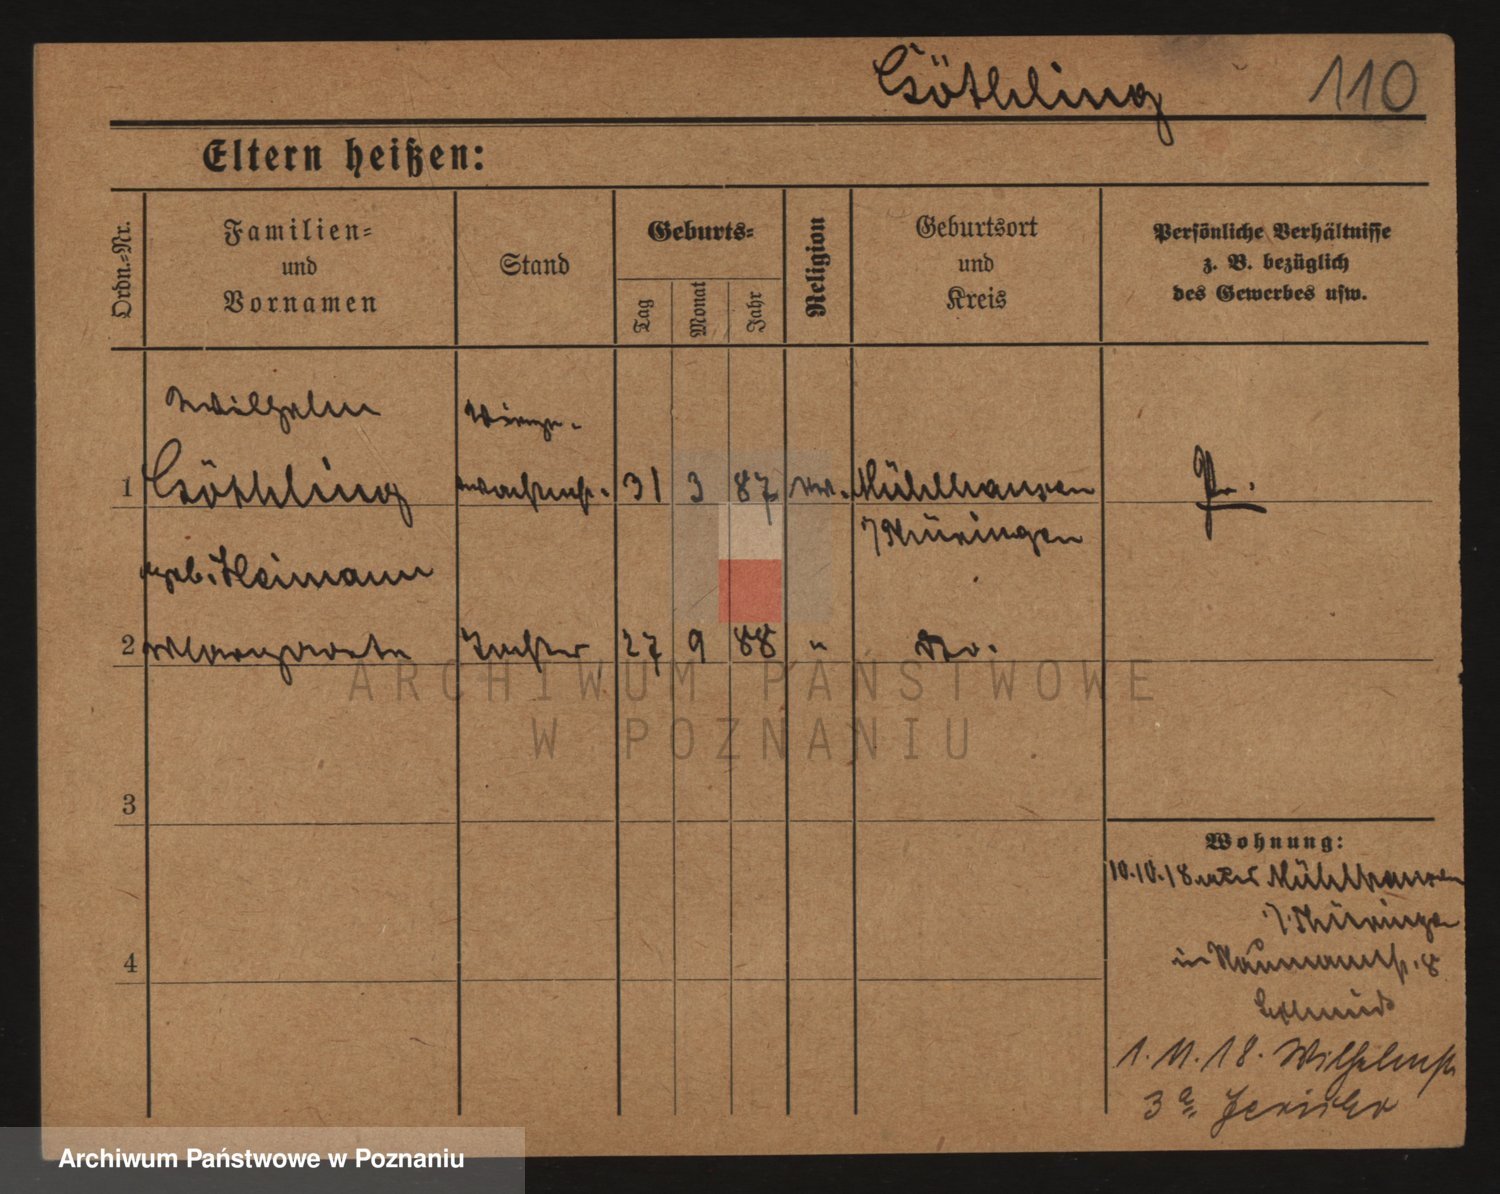 Göthling 110
Eltern heißen:
Ordn.-Nr.
Familien-
und
Vornamen
Stand
Geburts-
Tag
Monat
Jahr
Religion
Geburtsort
und
Kreis
Persönliche Verhältnisse
z. B. bezüglich
des Gewerbes usw.
Wilhelm
1 Göthling 31 3 87 ev. Mühlhausen Pr.
i/Thüringen
geb. Heimann
2 Margarete Tochter 27 9 88 " Do.
ARCHIWUM PAŃSTWOWE
W POZNANIU
3
4
Wohnung:
10.10.18 Mühlhausen
i/Thüringen
in Naumannstr. 8
Schmidt
1.11.18. Wilhelmstr
3 a
Archiwum Państwowe w Poznaniu